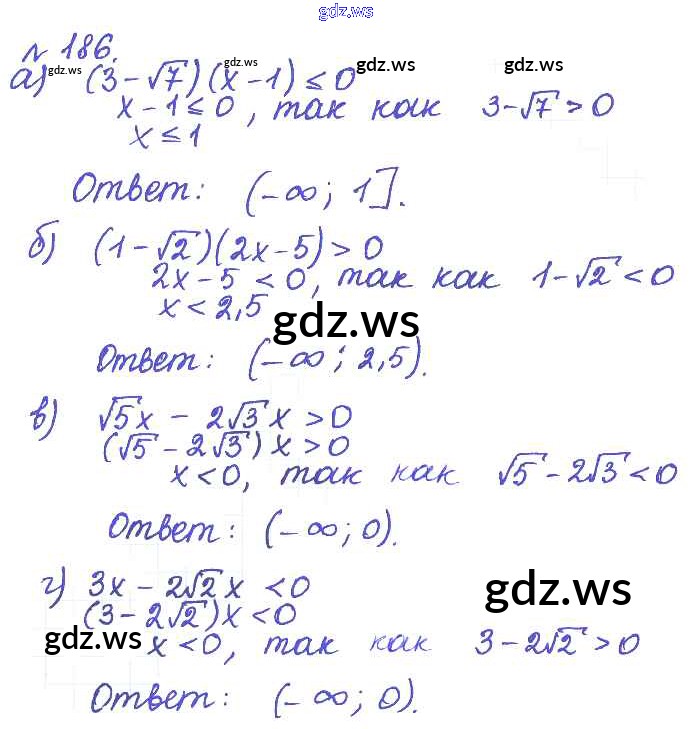 gdz.ws
№ 186.
а) (3-√7)(x-1) ≤ 0
gdz.ws gdz.ws gdz.ws gdz.ws
x-1 ≤ 0, так как 3-√7 > 0
x ≤ 1
Ответ: (-∞; 1].
б) (1-√2)(2x-5) > 0
2x-5 < 0, так как 1-√2 < 0
x < 2,5
gdz.ws
Ответ: (-∞; 2,5).
в) √5x - 2√3x > 0
(√5-2√3)x > 0
x < 0, так как √5-2√3 < 0
Ответ: (-∞; 0).
г) 3x - 2√2x < 0
gdz.ws
(3-2√2)x < 0
gdz.ws
x < 0, так как 3-2√2 > 0
Ответ: (-∞; 0).